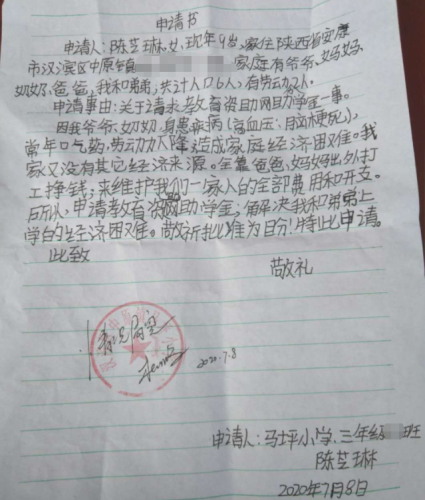 申请书
申请人:陈芝琳,女,现年9岁,家住陕西省安康
市汉滨区中原镇 家庭有爷爷、妈妈、
奶奶、爸爸,我和弟弟,共计人口6人,有劳动力2人。
申请事由:关于请求教育资助网助学金一事。
因我爷爷、奶奶,身患疾病(高血压、脑梗死),
常年口气药,劳动力下降造成家庭经济困难。我
家又没有其它经济来源。全靠爸爸、妈妈出外打
工挣钱,来维护我们一家人的全部费用和开支。
所以,申请教育资助网助学金,解决我和弟弟上
学的经济困难。敬祈批准为盼!特此申请。
此致
敬礼
情况属实
2020.7.8
申请人:马坪小学、三年级 班
陈芝琳
2020年7月8日